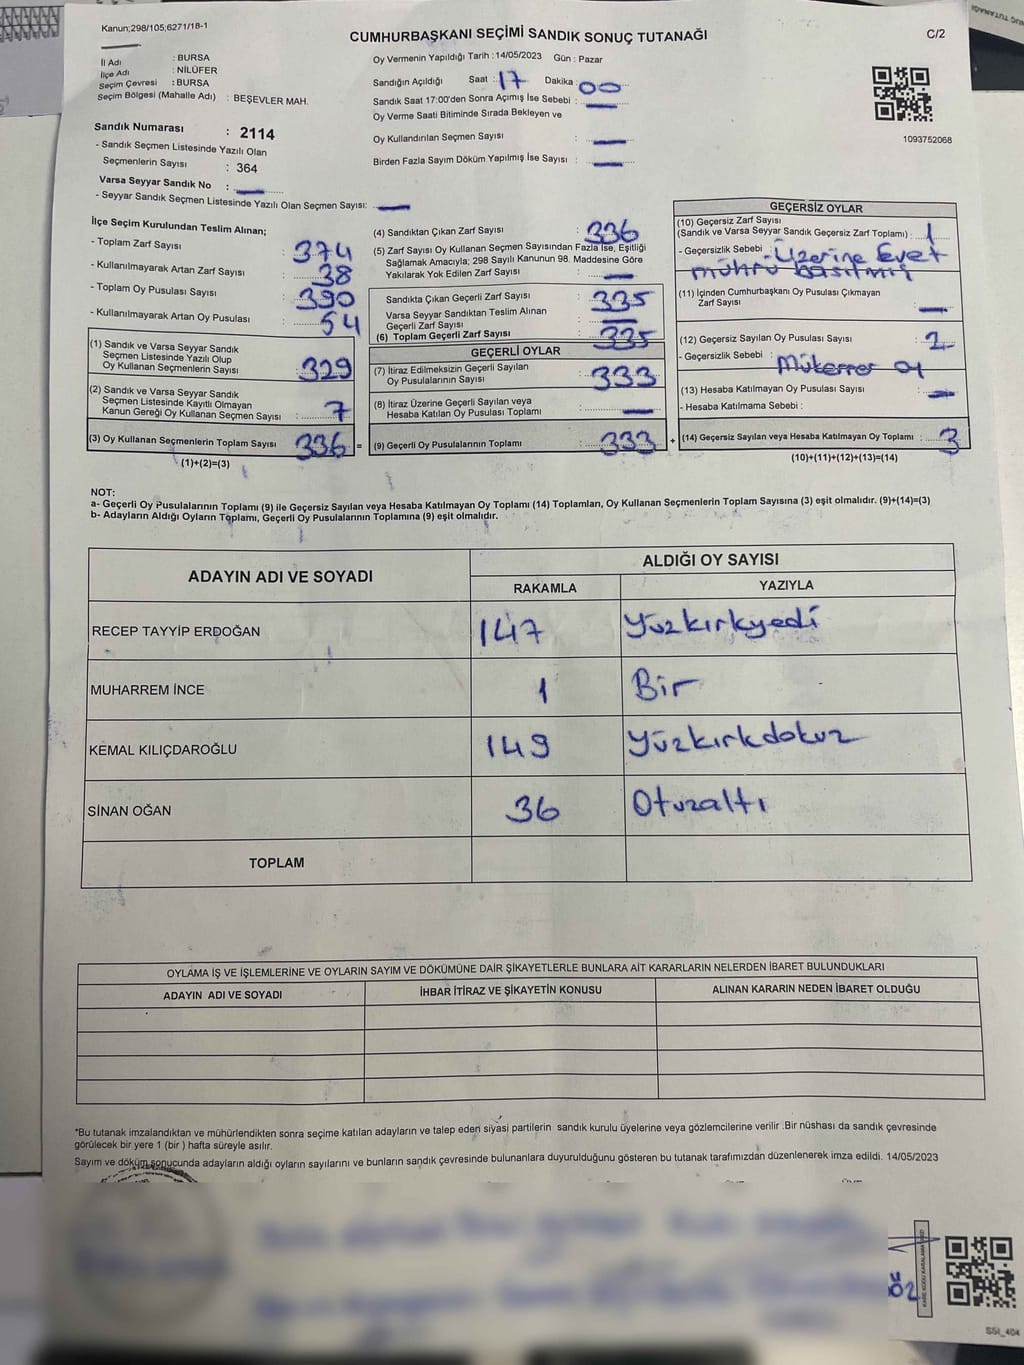 Kanun;298/105;6271/18-1
CUMHURBAŞKANI SEÇİMİ SANDIK SONUÇ TUTANAĞI
C/2
İl Adı : BURSA
İlçe Adı : NİLÜFER
Seçim Çevresi : BURSA
Seçim Bölgesi (Mahalle Adı) : BEŞEVLER MAH.
Sandık Numarası : 2114
- Sandık Seçmen Listesinde Yazılı Olan
Seçmenlerin Sayısı : 364
Varsa Seyyar Sandık No :
- Seyyar Sandık Seçmen Listesinde Yazılı Olan Seçmen Sayısı:
Oy Vermenin Yapıldığı Tarih : 14/05/2023 Gün : Pazar
Sandığın Açıldığı Saat : 17 Dakika 00
Sandık Saat 17:00'den Sonra Açımış İse Sebebi :
Oy Verme Saati Bitiminde Sırada Bekleyen ve
Oy Kullandırılan Seçmen Sayısı :
Birden Fazla Sayım Döküm Yapılmış İse Sayısı :
1093752068
İlçe Seçim Kurulundan Teslim Alınan;
- Toplam Zarf Sayısı : 374
- Kullanılmayarak Artan Zarf Sayısı : 38
- Toplam Oy Pusulası Sayısı : 390
- Kullanılmayarak Artan Oy Pusulası : 54
(1) Sandık ve Varsa Seyyar Sandık
Seçmen Listesinde Yazılı Olup
Oy Kullanan Seçmenlerin Sayısı : 329
(2) Sandık ve Varsa Seyyar Sandık
Seçmen Listesinde Kayıtlı Olmayan
Kanun Gereği Oy Kullanan Seçmen Sayısı : 7
(3) Oy Kullanan Seçmenlerin Toplam Sayısı 336 =
(1)+(2)=(3)
(4) Sandıktan Çıkan Zarf Sayısı : 336
(5) Zarf Sayısı Oy Kullanan Seçmen Sayısından Fazla İse, Eşitliği
Sağlamak Amacıyla; 298 Sayılı Kanunun 98. Maddesine Göre
Yakılarak Yok Edilen Zarf Sayısı :
Sandıkta Çıkan Geçerli Zarf Sayısı : 335
Varsa Seyyar Sandıktan Teslim Alınan
Geçerli Zarf Sayısı :
(6) Toplam Geçerli Zarf Sayısı : 335
GEÇERLİ OYLAR
(7) İtiraz Edilmeksizin Geçerli Sayılan
Oy Pusulalarının Sayısı : 333
(8) İtiraz Üzerine Geçerli Sayılan veya
Hesaba Katılan Oy Pusulası Toplamı :
(9) Geçerli Oy Pusulalarının Toplamı : 333 +
GEÇERSİZ OYLAR
(10) Geçersiz Zarf Sayısı
(Sandık ve Varsa Seyyar Sandık Geçersiz Zarf Toplamı) : 1
- Geçersizlik Sebebi : Üzerine Evet
mührü basılmış
(11) İçinden Cumhurbaşkanı Oy Pusulası Çıkmayan
Zarf Sayısı :
(12) Geçersiz Sayılan Oy Pusulası Sayısı : 2
- Geçersizlik Sebebi : Mükerrer oy
(13) Hesaba Katılmayan Oy Pusulası Sayısı :
- Hesaba Katılmama Sebebi :
(14) Geçersiz Sayılan veya Hesaba Katılmayan Oy Toplamı : 3
(10)+(11)+(12)+(13)=(14)
NOT:
a- Geçerli Oy Pusulalarının Toplamı (9) ile Geçersiz Sayılan veya Hesaba Katılmayan Oy Toplamı (14) Toplamları, Oy Kullanan Seçmenlerin Toplam Sayısına (3) eşit olmalıdır. (9)+(14)=(3)
b- Adayların Aldığı Oyların Toplamı, Geçerli Oy Pusulalarının Toplamına (9) eşit olmalıdır.
ADAYIN ADI VE SOYADI
ALDIĞI OY SAYISI
RAKAMLA YAZIYLA
RECEP TAYYİP ERDOĞAN 147 Yüzkırkyedi
MUHARREM İNCE 1 Bir
KEMAL KILIÇDAROĞLU 149 Yüzkırkdokuz
SİNAN OĞAN 36 Otuzaltı
TOPLAM
OYLAMA İŞ VE İŞLEMLERİNE VE OYLARIN SAYIM VE DÖKÜMÜNE DAİR ŞİKAYETLERLE BUNLARA AİT KARARLARIN NELERDEN İBARET BULUNDUKLARI
ADAYIN ADI VE SOYADI İHBAR İTİRAZ VE ŞİKAYETİN KONUSU ALINAN KARARIN NEDEN İBARET OLDUĞU
*Bu tutanak imzalandıktan ve mühürlendikten sonra seçime katılan adayların ve talep eden siyasi partilerin sandık kurulu üyelerine veya gözlemcilerine verilir .Bir nüshası da sandık çevresinde
görülecek bir yere 1 (bir ) hafta süreyle asılır.
Sayım ve döküm sonucunda adayların aldığı oyların sayılarını ve bunların sandık çevresinde bulunanlara duyurulduğunu gösteren bu tutanak tarafımızdan düzenlenerek imza edildi. 14/05/2023
SSI_404